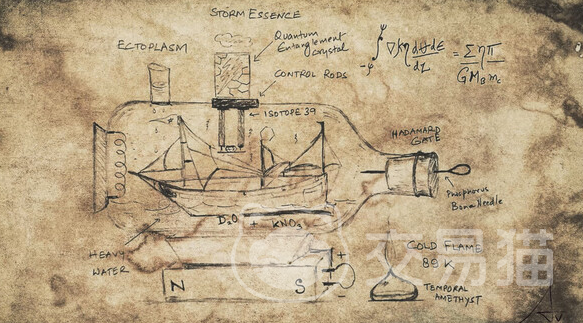 STORM ESSENCE
ECTOPLASM
Quantum
Entanglement
crystal
CONTROL RODS
ISOTOPE 39
HADAMARD
GATE
Phosphorus
Bone Needle
D₂O + KNO₃
HEAVY
WATER
N S
+
−
COLD FLAME
89 K
TEMPORAL
AMETHYST
交易猫